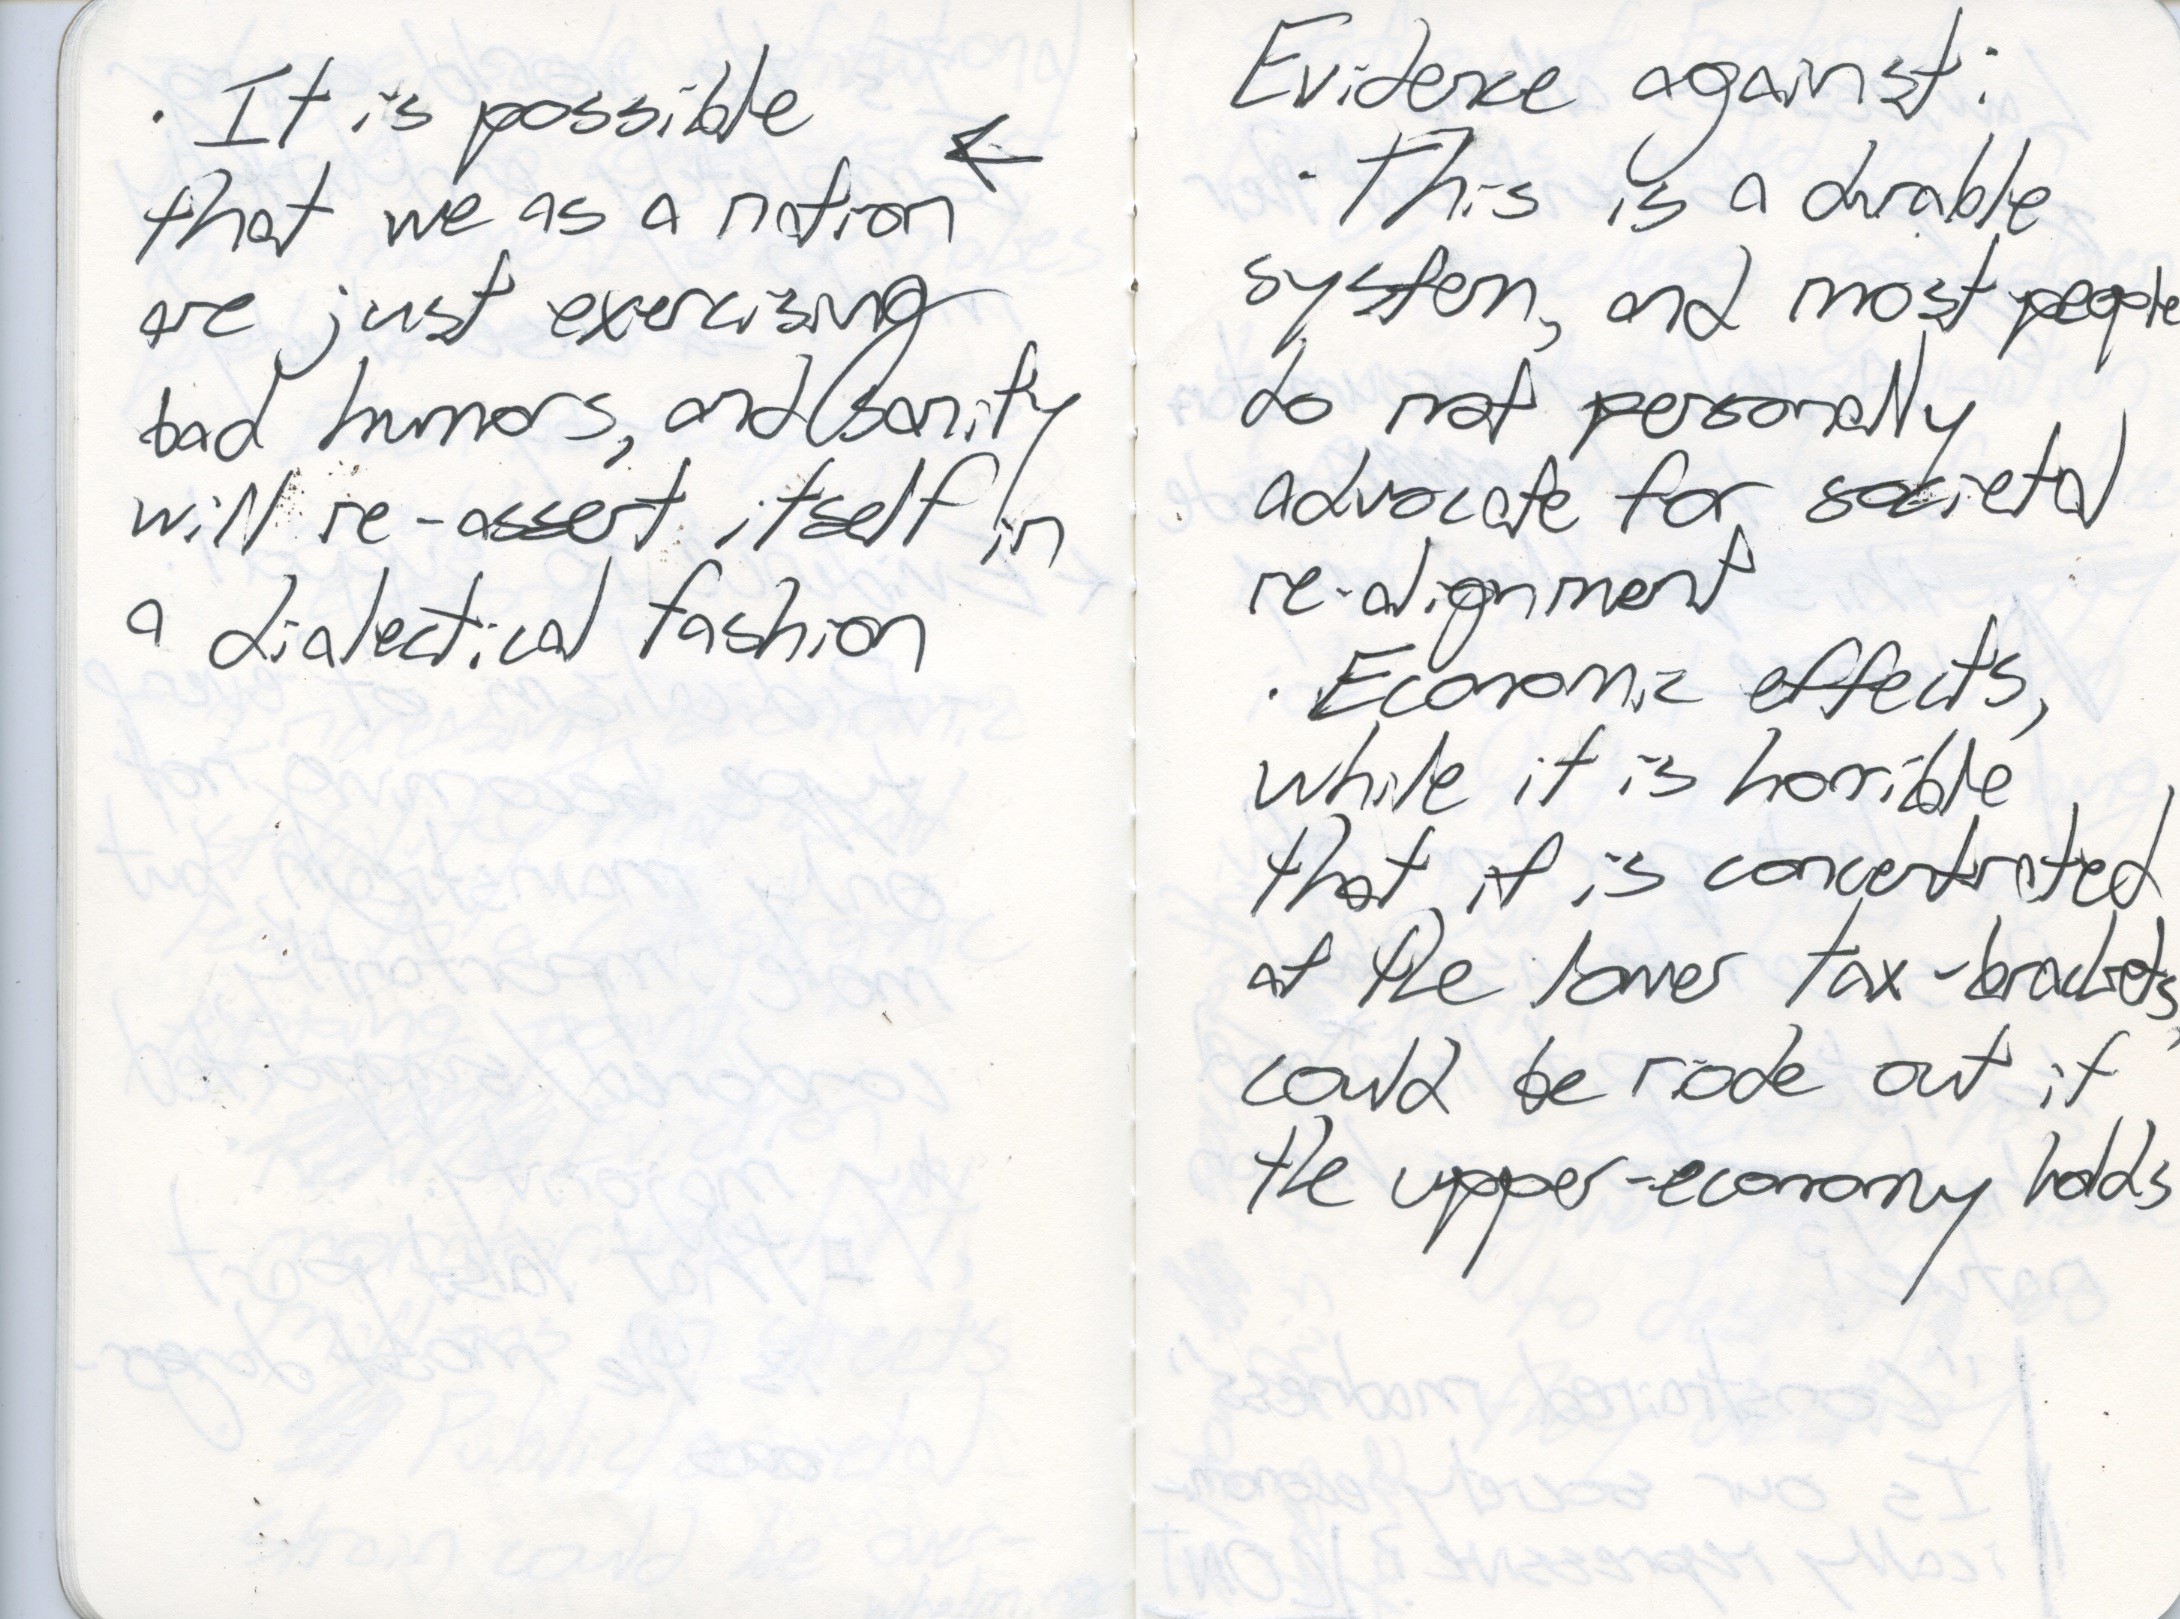 · It is possible
that we as a nation
are just exercising
bad humors, and sanity
will re-assert itself in
a dialectical fashion
←
Evidence against:
· This is a durable
system, and most people
do not personally
advocate for societal
re-alignment
· Economic effects,
while it is horrible
that it is concentrated
at the lower tax-brackets,
could be rode out if
the upper-economy holds